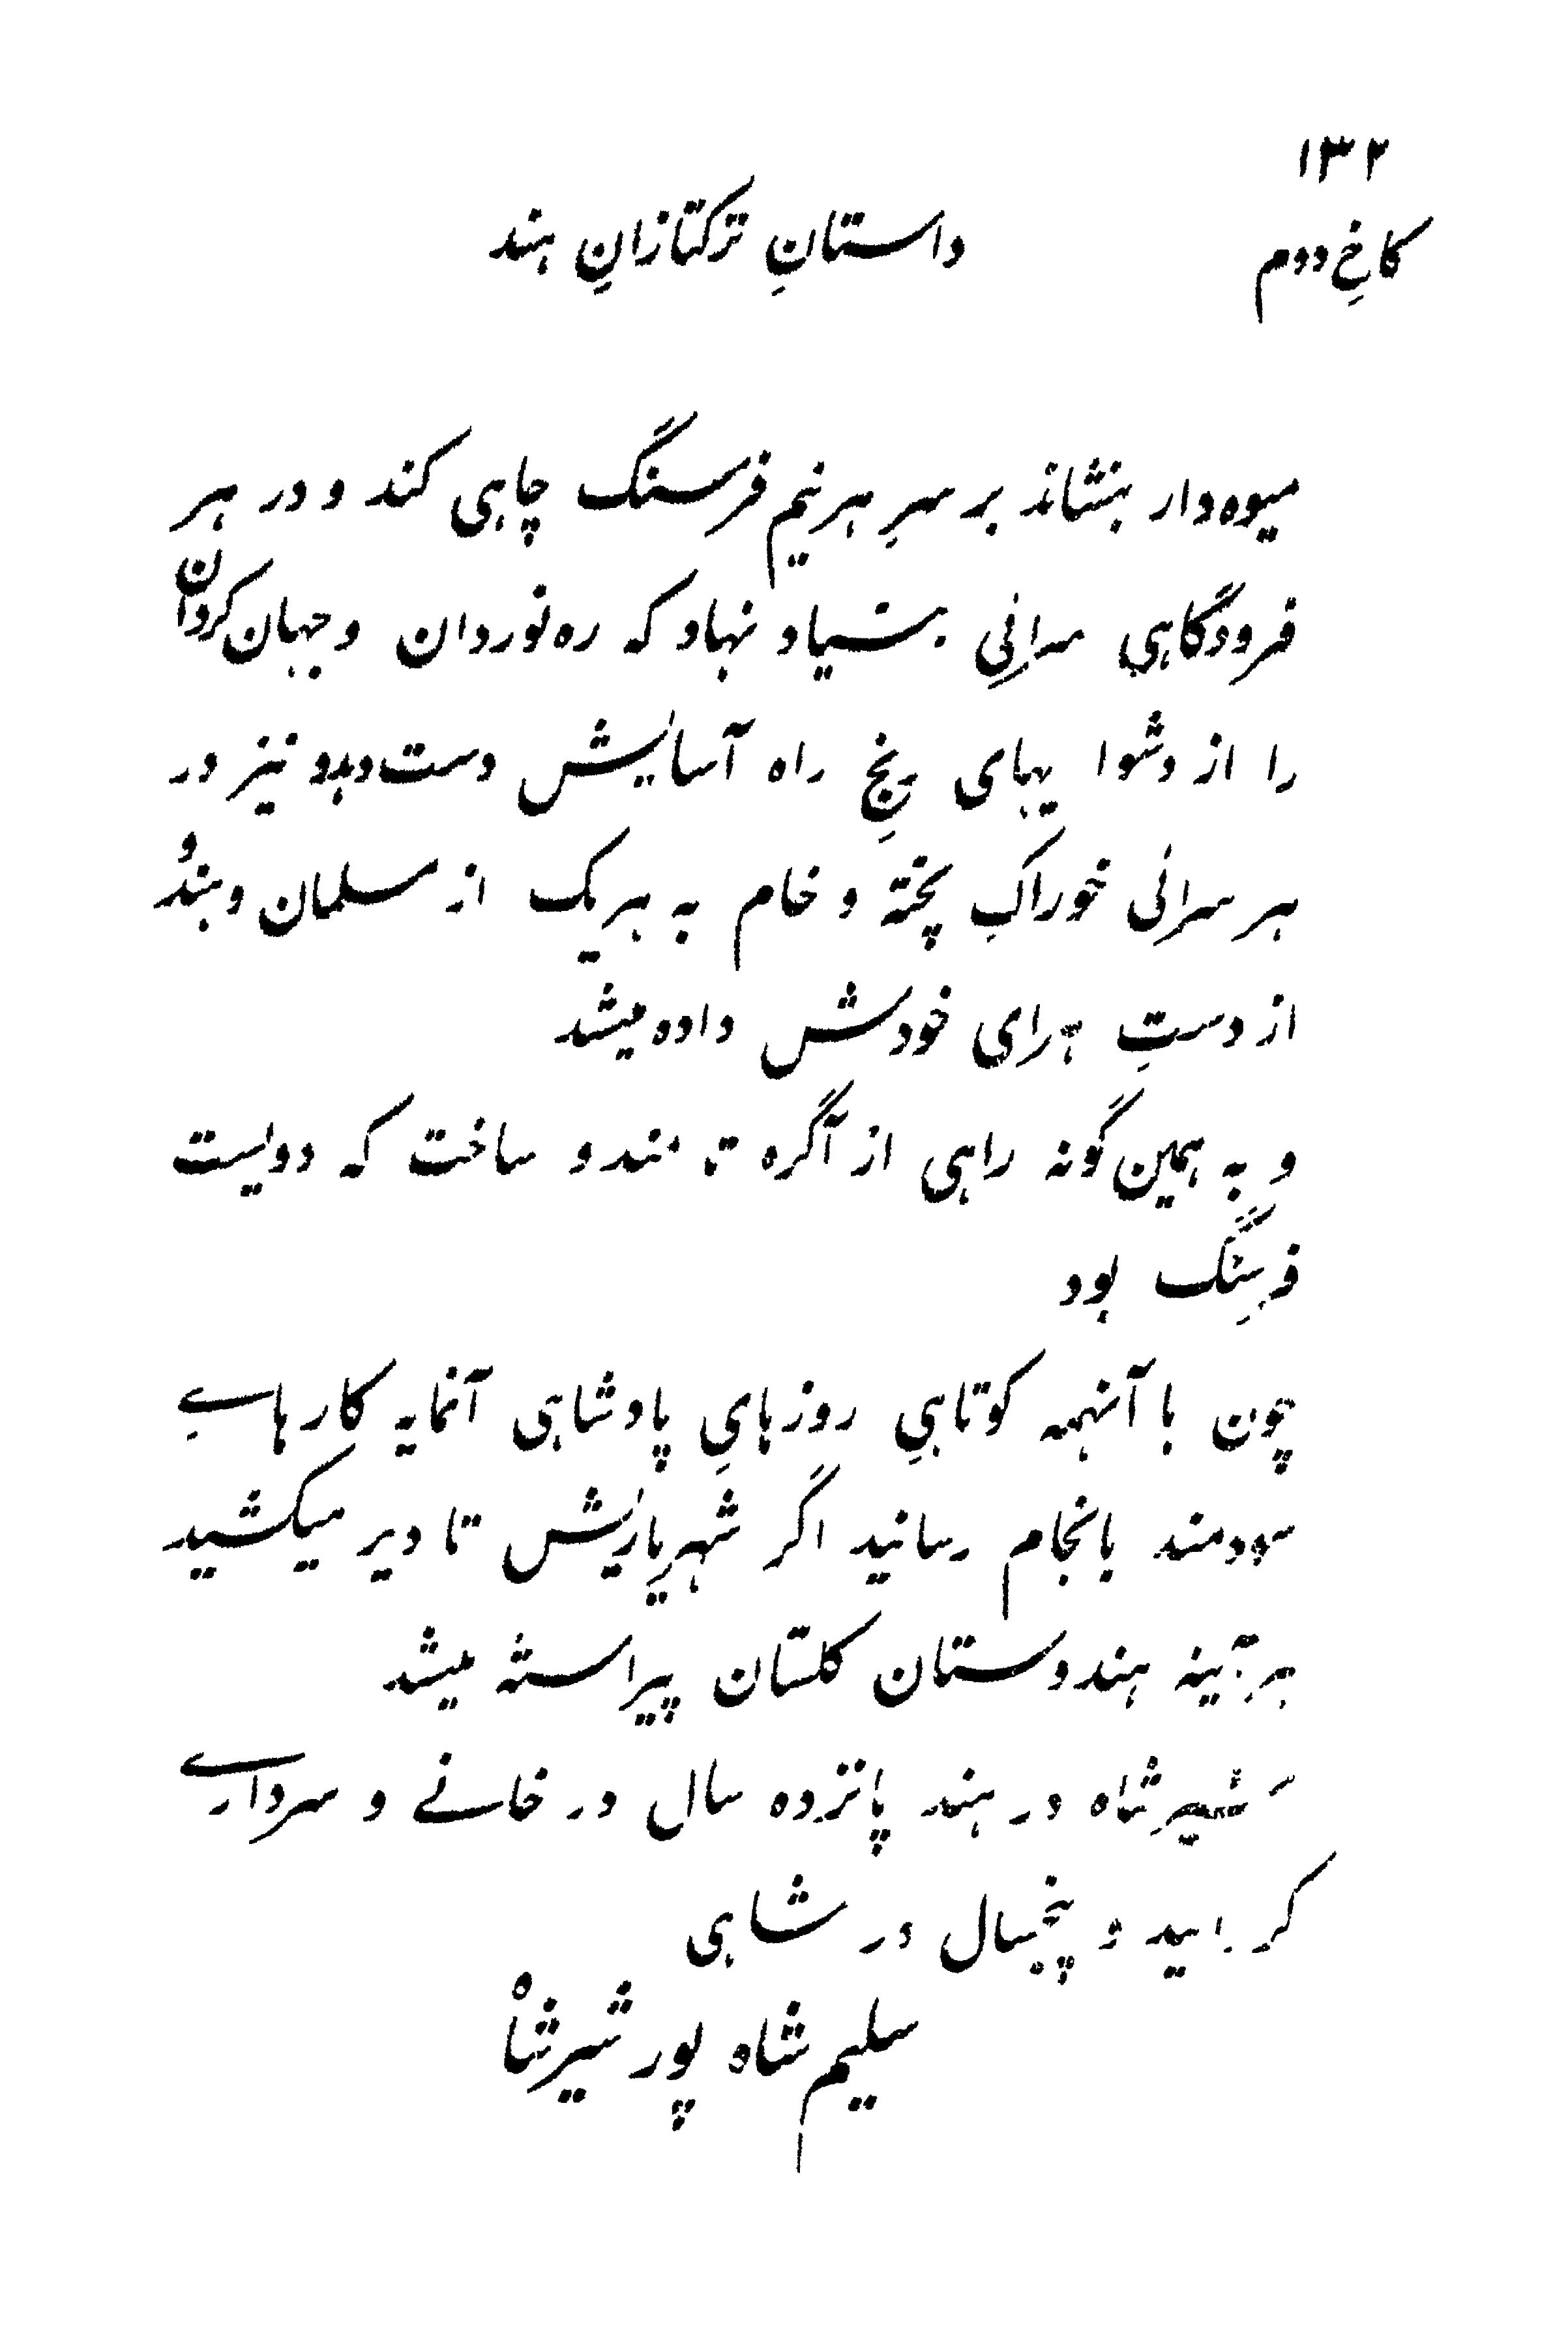 ۱۳۲
کاخِ دوم
داستانِ ترکتازانِ هند
میوه‌دار بنشاند بر سرِ هر نیم فرسنگ چاهی کند و در هر
فرودگاهی سرائی بنیاد نهاد که ره نوردان و جهان گردان
را از دشواریهای رنجِ راه آسایش دست دهد و نیز در
هر سرائی خوراکِ پخته و خام به هریک از مسلمان و هندو
از دستِ خودش داده میشد
و به همین گونه راهی از آگره تا مندو ساخت که دویست
فرسنگ بود
چون با آنهمه کوتاهیِ روزهایِ پادشاهی آنمایه کارهایِ
سودمند بانجام رسانید اگر شهریاریش تا دیر میکشید
هرآینه هندوستان گلستان پیراسته میشد
شیرشاه در هند پانزده سال در خانی و سرداری
گذرانید و پنجسال در شاهی
سلیم شاه پور شیرشاه